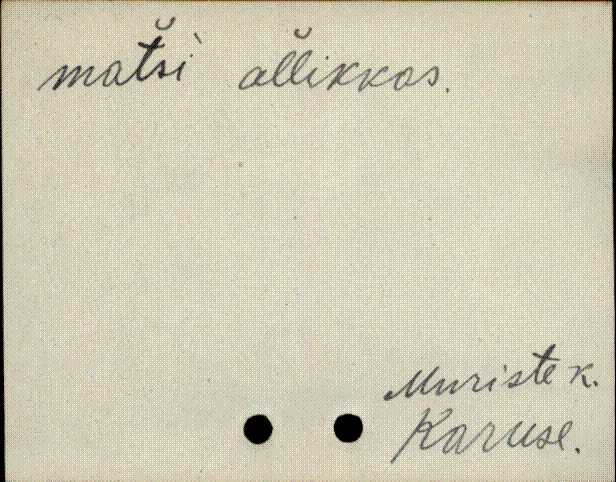 matsi allikkos.
Muriste k.
Karuse.